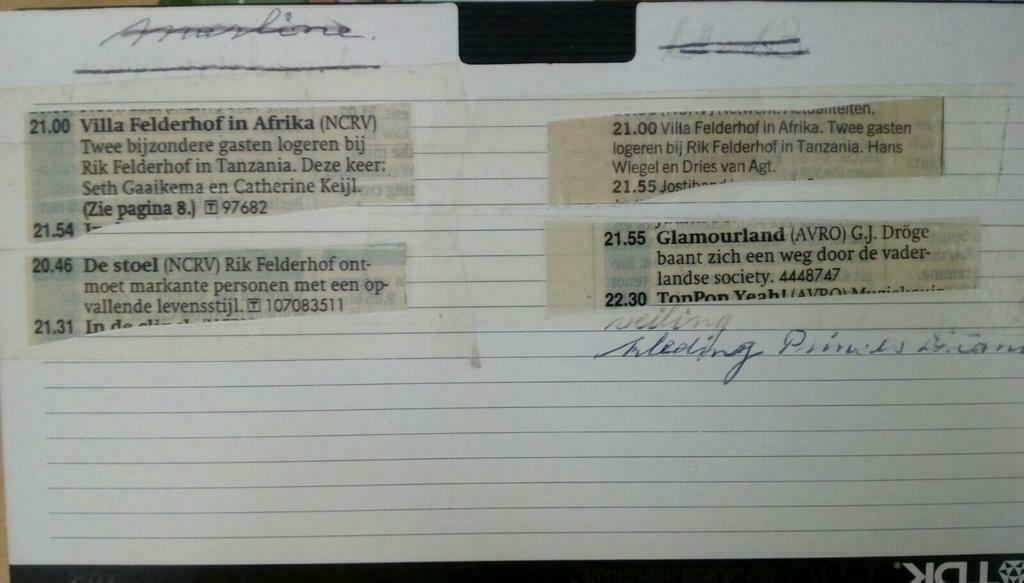 21.00 Villa Felderhof in Afrika (NCRV)
Twee bijzondere gasten logeren bij
Rik Felderhof in Tanzania. Deze keer:
Seth Gaaikema en Catherine Keijl.
(Zie pagina 8.) T 97682
21.54
20.46 De stoel (NCRV) Rik Felderhof ont-
moet markante personen met een op-
vallende levensstijl. T 107083511
21.31 In de
21.00 Villa Felderhof in Afrika. Twee gasten
logeren bij Rik Felderhof in Tanzania. Hans
Wiegel en Dries van Agt.
21.55
21.55 Glamourland (AVRO) G.J. Dröge
baant zich een weg door de vader-
landse society. 4448747
22.30 TopPop Yeah! (AVRO)
veiling
kleding Prinses Diana
TDK